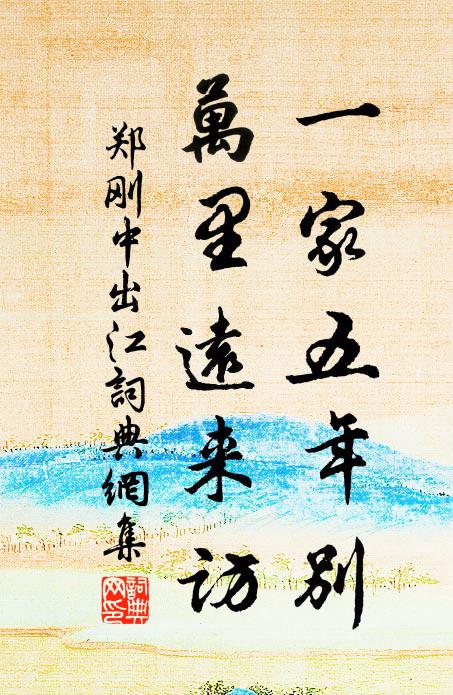 一家五年别
萬里遠来访
郑刚中出江詞典網集
詞典网印